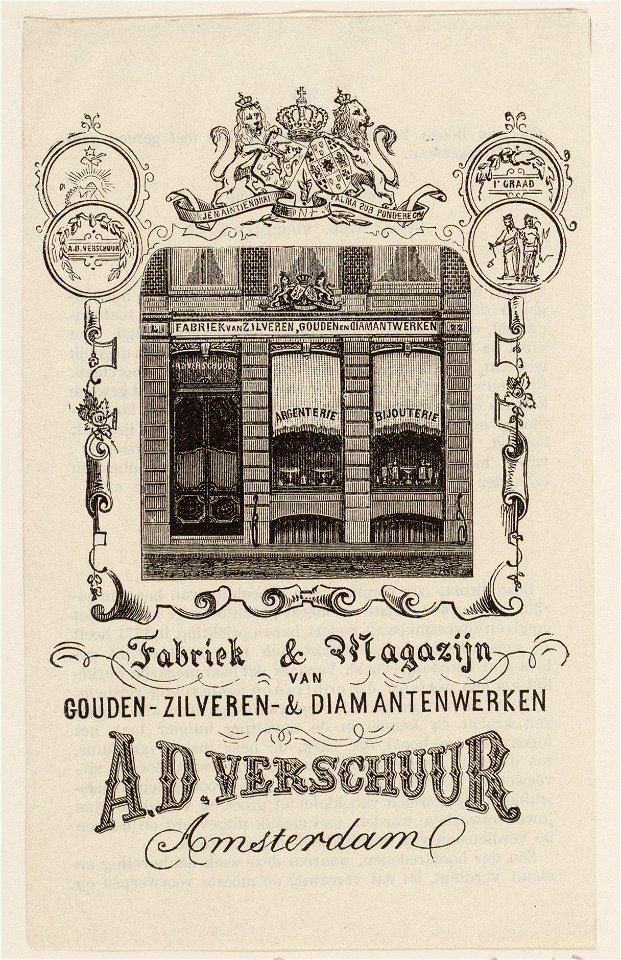 JE MAINTIENDRAI
ALMA SUB PONDERE
A.D. VERSCHUUR
1E GRAAD
FABRIEK VAN ZILVEREN, GOUDEN EN DIAMANTWERKEN
A.D. VERSCHUUR
ARGENTERIE
BIJOUTERIE
Fabriek & Magazijn
VAN
GOUDEN- ZILVEREN- & DIAMANTENWERKEN
A.D. VERSCHUUR
Amsterdam